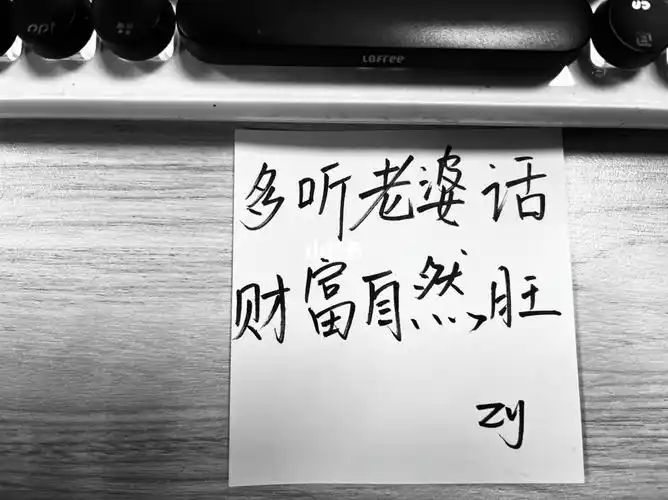 LOFREE
多听老婆话
财富自然旺
zy